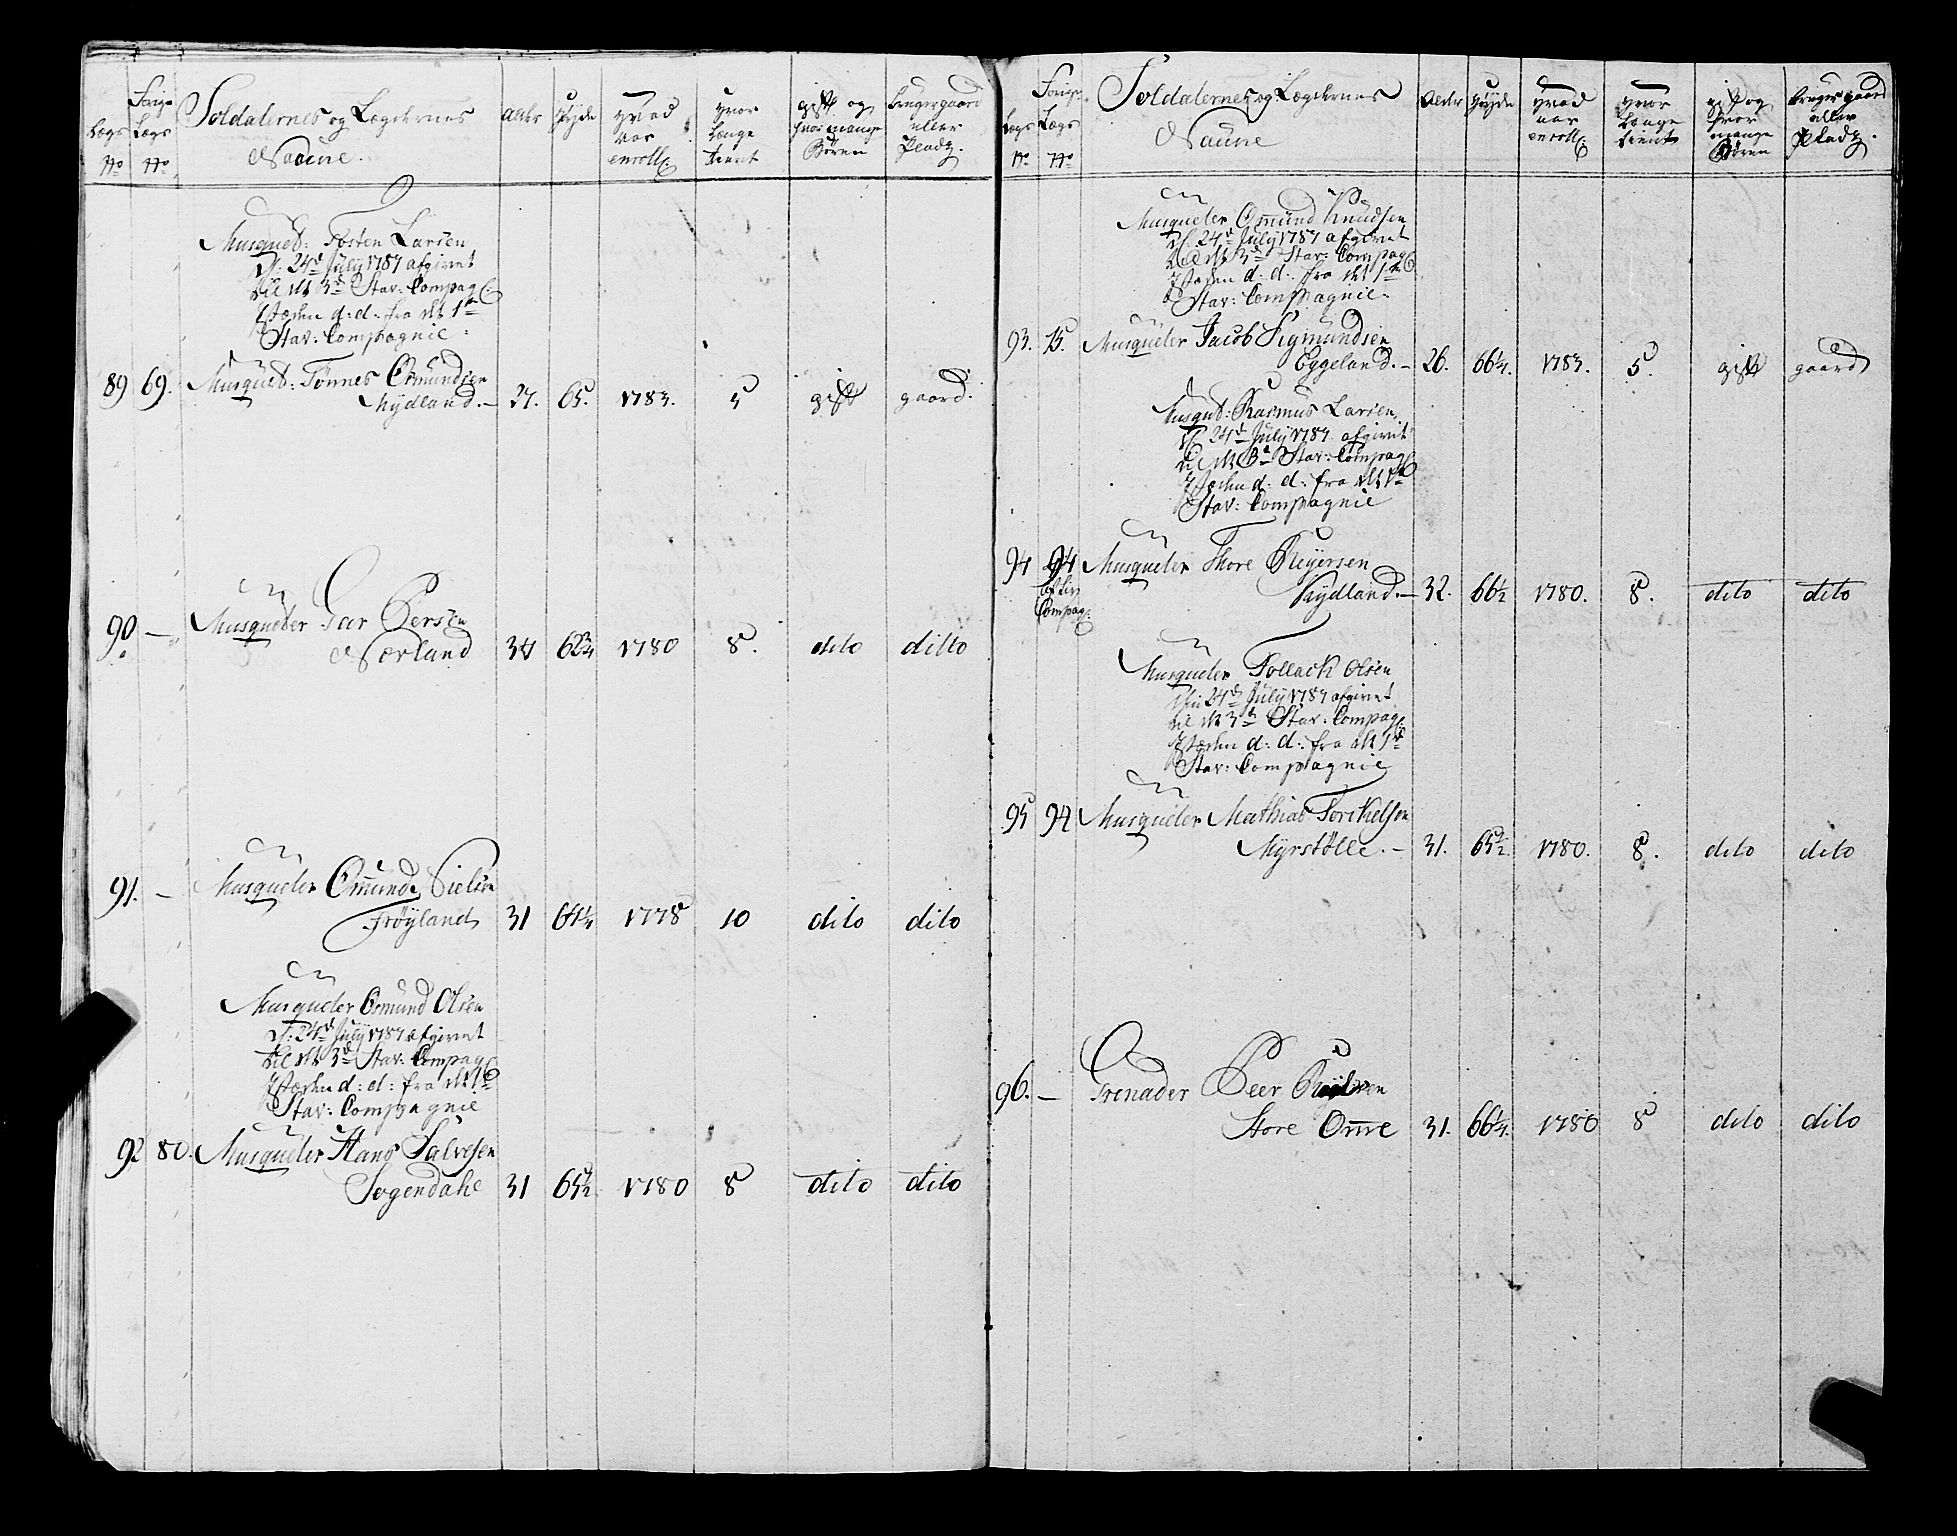 Lægs No
Forige Lægs No
Soldaternes og Lægdernes Naune.
Alder
Høyde
hvad aar enroll:
hvor længe tient
gift og hvor mange Børen
bruger gaard eller Pladz.
Musquet: Tosten Larsen
d: 24d July 1787 afgivet
til dt 3d Stav: Compag:
d: d: fra dt 1te
Stav: Compagnie
89 69. Musquet: Tønnes Osmundsen
Kydland. 27. 65. 1783. 5 gift gaard.
90. — Musqueter Gar Persen
Nærland 34 62¾ 1780 8. dito ditto
91. — Musqueter Omund Nielsen
Frøyland 31 64¼ 1778 10 dito dito
Musqueter Osmund Olsen
d: 24d July 1787 afgivet
til dt 3d Stav: Compag:
d: d: fra dt 1te
Stav: Compagnie
92 80. Musqueter Hans Salvesen
Sogendahl 31 65½ 1780 8 dito dito
Lægs No
Forige Lægs No
Soldaternes og Lægdernes Naune
Alder
Høyde
hvad aar enroll:
hvor længe tient
gift og hvor mange Børen
bruger gaard eller Pladz.
Musqueter Omund Knudsen
d: 24d July 1787 afgivet
til dt 3d Stav: Compag:
d: d: fra dt 1te
Stav: Compagnie
93. 15. Musqueter Jacob Sigmundsen
Eggeland. 26. 66¼. 1783. 5. gift gaard
Musquet: Rasmus Larsen
d: 24d July 1787 afgivet
til dt 3d Stav: Compag:
d: d: fra dt 1te
Stav: Compagnie
94 94 Musqueter Thore Reyersen
Compag:
Kydland. 32. 66½ 1780. 8. dito dito
Musqueter Tollack Olsen
den 24d July 1787 afgivet
til dt 3d Stav: Compag:
d: d: fra dt 1te
Stav: Compagnie
95 94 Musqueter Mathias Torkelsen
Myrstølle. 31. 65½ 1780. 8. dito dito
96. — Grenader Peer
Store Omre 31. 66¼. 1780 8 dito dito